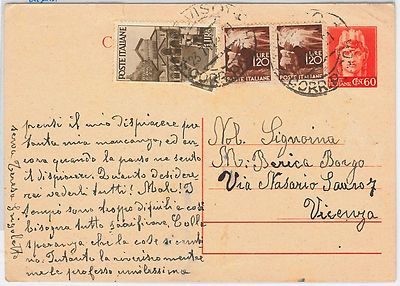 C
POSTE ITALIANE
LIRE
1,20
POSTE ITALIANE
LIRE
1,20
POSTE ITALIANE
CENT. 60
Nob. Signorina
M: Berica Borgo
Via Nasario Sauro 7
Vicenza
penti il mio dispiacere per
tanta mia mancanza, ed an
cora quando la penso ne sento
il dispiacere. Quanto desidere
rei vederli tutti! Mah! I
tempi sono troppo difficili e così
bisogna tutto sacrificare. Colla
speranza che le cose si cambi
no. Intanto la riverisco mentre
me le professo umilissima
serva